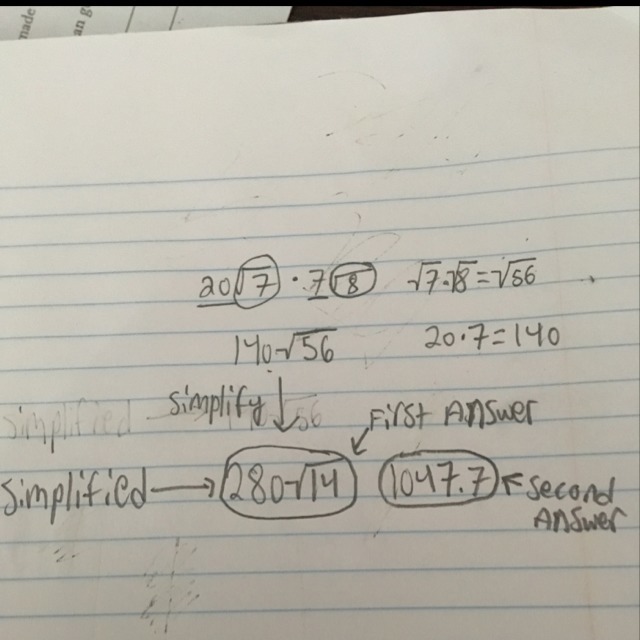 made
an g
20√7 · 7√8 √7·√8=√56
140√56 20·7=140
simplify
simplified 56
First Answer
simplified → 280√14 1047.7 ← second
Answer